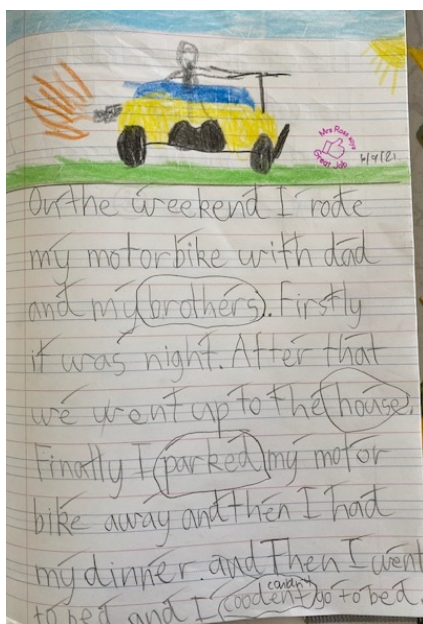 Mrs Ross says
Great Job
6/9/21
On the weekend I rode
my motorbike with dad
and my brothers. Firstly
it was night. After that
we went up to the house.
Finally I parked my motor
bike away and then I had
my dinner. and Then I went
to bed and I coodent go to bed.